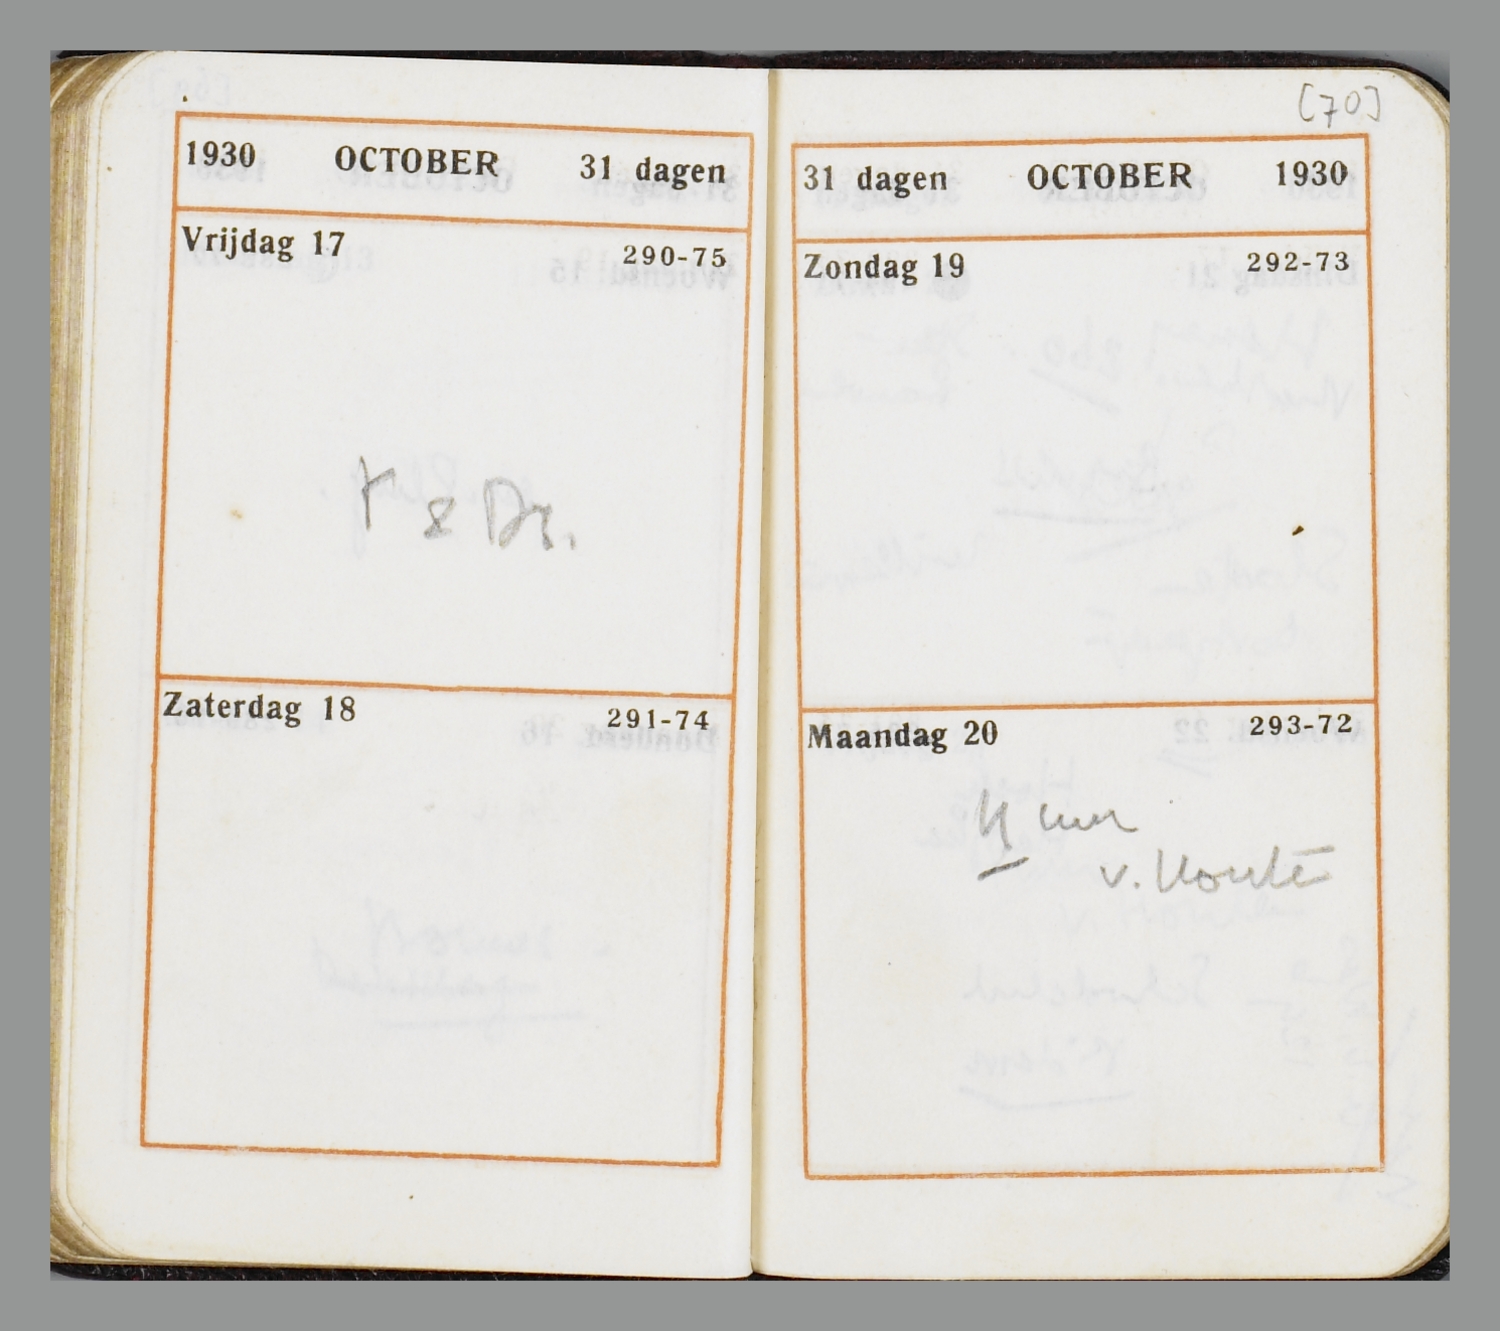 1930 OCTOBER 31 dagen
Vrijdag 17 290-75
& Dr.
Zaterdag 18 291-74
[70]
31 dagen OCTOBER 1930
Zondag 19 292-73
Maandag 20 293-72
uur
v.